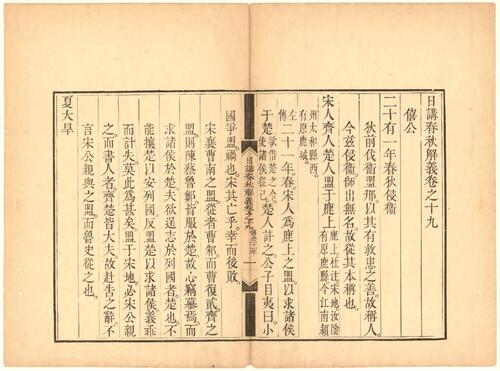 日講春秋解義卷之十九
僖公
二十有一年春狄侵衛
狄前伐衛盟邢以其有救患之善故稱人
今兹侵衛師出無名故從其本稱也
宋人齊人楚人盟于鹿上
鹿上杜注宋地汝陰
有原鹿縣今江南潁
州太和縣西
有原鹿城
左傳
二十一年春宋人爲鹿上之盟以求諸侯
于楚
欲借楚之令
使諸侯從已
楚人許之公子目夷曰小
日講春秋解義卷之十九
僖公二十一年
一
國爭盟禍也宋其亡乎幸而後敗
宋襄曹南之盟從者曹邾而曹復貳齊之
盟則陳蔡魯鄭皆服於楚故心竊慕焉而
求諸侯於楚夫欲逞志於列國者楚也不
能攘楚以安列國反盟楚以求諸侯義乖
而計失莫此爲甚矣盟于宋地必宋公親
之而書人者齊楚皆大夫故赴告之辭不
言宋公親與之盟而魯史從之也
夏大旱